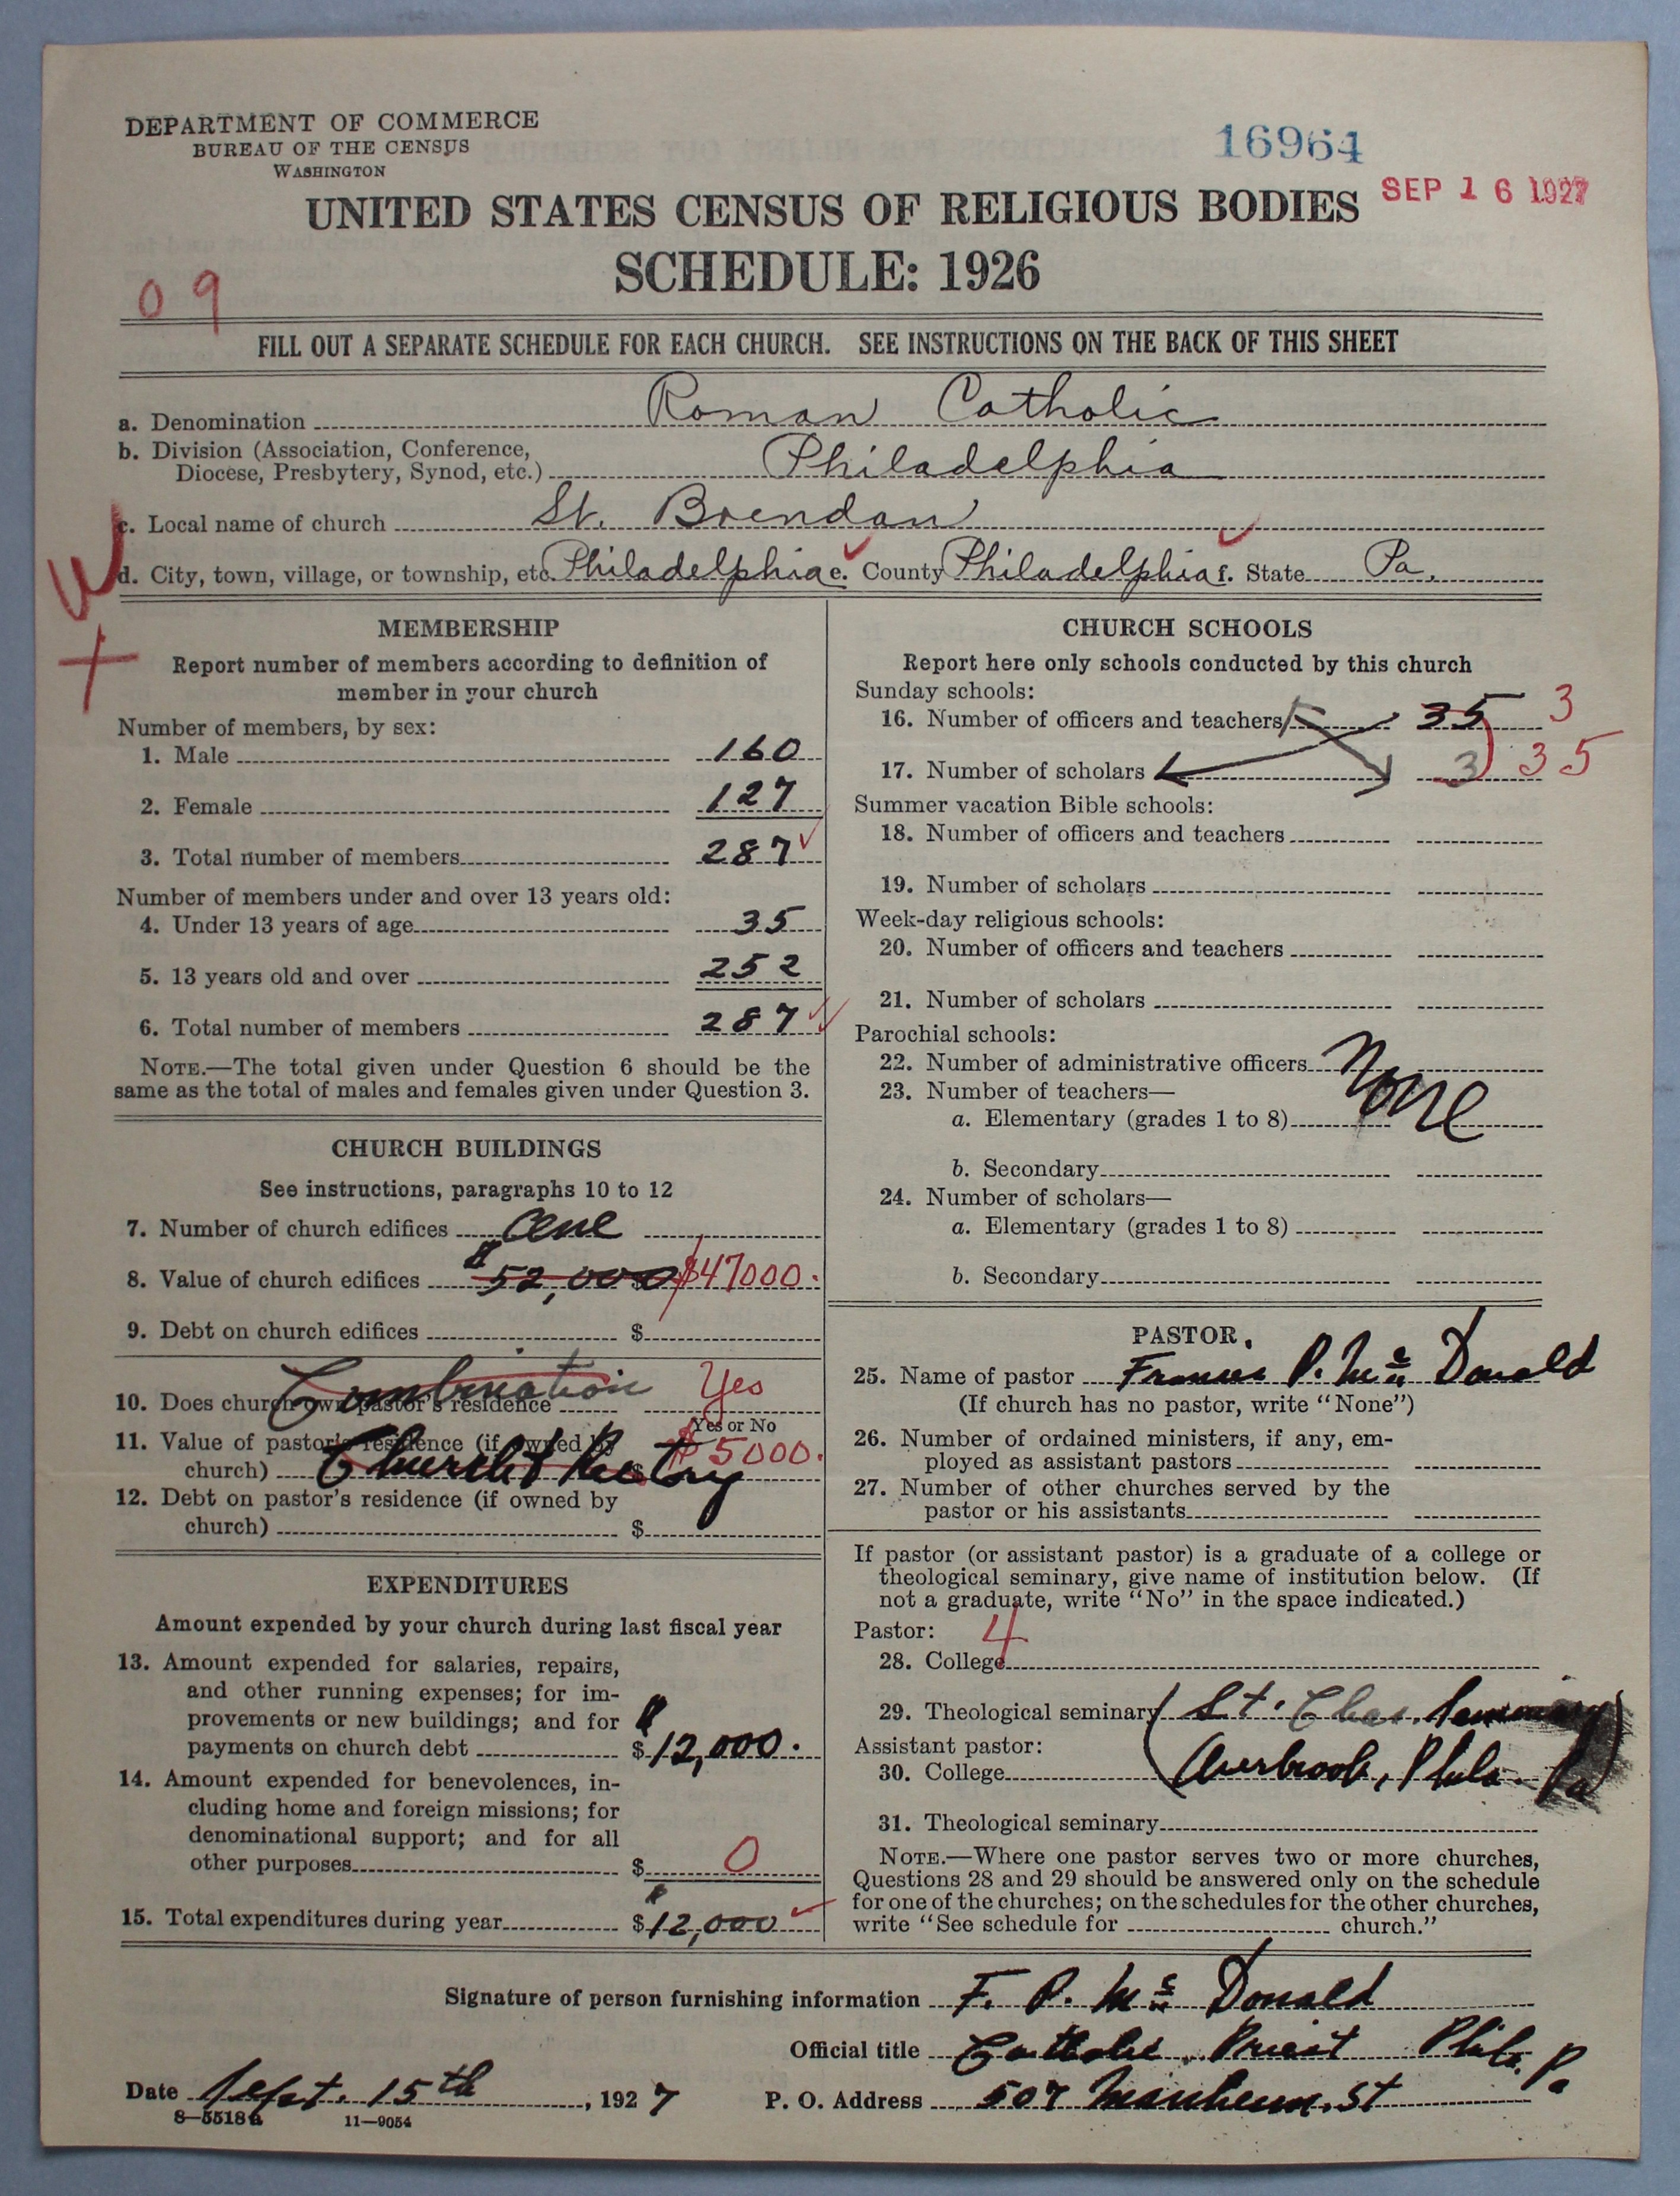 DEPARTMENT OF COMMERCE
BUREAU OF THE CENSUS
WASHINGTON
16964
SEP 16 1927
UNITED STATES CENSUS OF RELIGIOUS BODIES
SCHEDULE: 1926
09
FILL OUT A SEPARATE SCHEDULE FOR EACH CHURCH. SEE INSTRUCTIONS ON THE BACK OF THIS SHEET
a. Denomination Roman Catholic
b. Division (Association, Conference,
Diocese, Presbytery, Synod, etc.) Philadelphia
c. Local name of church St. Brendan
d. City, town, village, or township, etc. Philadelphia e. County Philadelphia f. State Pa.
W
MEMBERSHIP
Report number of members according to definition of
member in your church
Number of members, by sex:
1. Male 160
2. Female 127
3. Total number of members 287
Number of members under and over 13 years old:
4. Under 13 years of age 35
5. 13 years old and over 252
6. Total number of members 287
NOTE.—The total given under Question 6 should be the
same as the total of males and females given under Question 3.
CHURCH BUILDINGS
See instructions, paragraphs 10 to 12
7. Number of church edifices one
8. Value of church edifices $52,000 $47000.
9. Debt on church edifices $
10. Does church own pastor's residence Combination Yes
Yes or No
11. Value of pastor's residence (if owned by
church) Church & Rectory $5000.
12. Debt on pastor's residence (if owned by
church) $
EXPENDITURES
Amount expended by your church during last fiscal year
13. Amount expended for salaries, repairs,
and other running expenses; for im-
provements or new buildings; and for
payments on church debt $12,000.
14. Amount expended for benevolences, in-
cluding home and foreign missions; for
denominational support; and for all
other purposes $ 0
15. Total expenditures during year $12,000
CHURCH SCHOOLS
Report here only schools conducted by this church
Sunday schools:
16. Number of officers and teachers 35 3
17. Number of scholars 3 35
Summer vacation Bible schools:
18. Number of officers and teachers
19. Number of scholars
Week-day religious schools:
20. Number of officers and teachers
21. Number of scholars
Parochial schools:
22. Number of administrative officers None
23. Number of teachers—
a. Elementary (grades 1 to 8)
b. Secondary
24. Number of scholars—
a. Elementary (grades 1 to 8)
b. Secondary
PASTOR
25. Name of pastor Francis P. Mc Donald
(If church has no pastor, write "None")
26. Number of ordained ministers, if any, em-
ployed as assistant pastors
27. Number of other churches served by the
pastor or his assistants
If pastor (or assistant pastor) is a graduate of a college or
theological seminary, give name of institution below. (If
not a graduate, write "No" in the space indicated.)
Pastor: 4
28. College
29. Theological seminary St. Chas. Seminary
Assistant pastor:
30. College Overbrook, Phila. Pa
31. Theological seminary
NOTE.—Where one pastor serves two or more churches,
Questions 28 and 29 should be answered only on the schedule
for one of the churches; on the schedules for the other churches,
write "See schedule for church."
Signature of person furnishing information F. P. Mc Donald
Official title Catholic Priest Phila. Pa
Date Sept. 15th, 1927 P. O. Address 507 Manheim St
8—5518a 11—9054